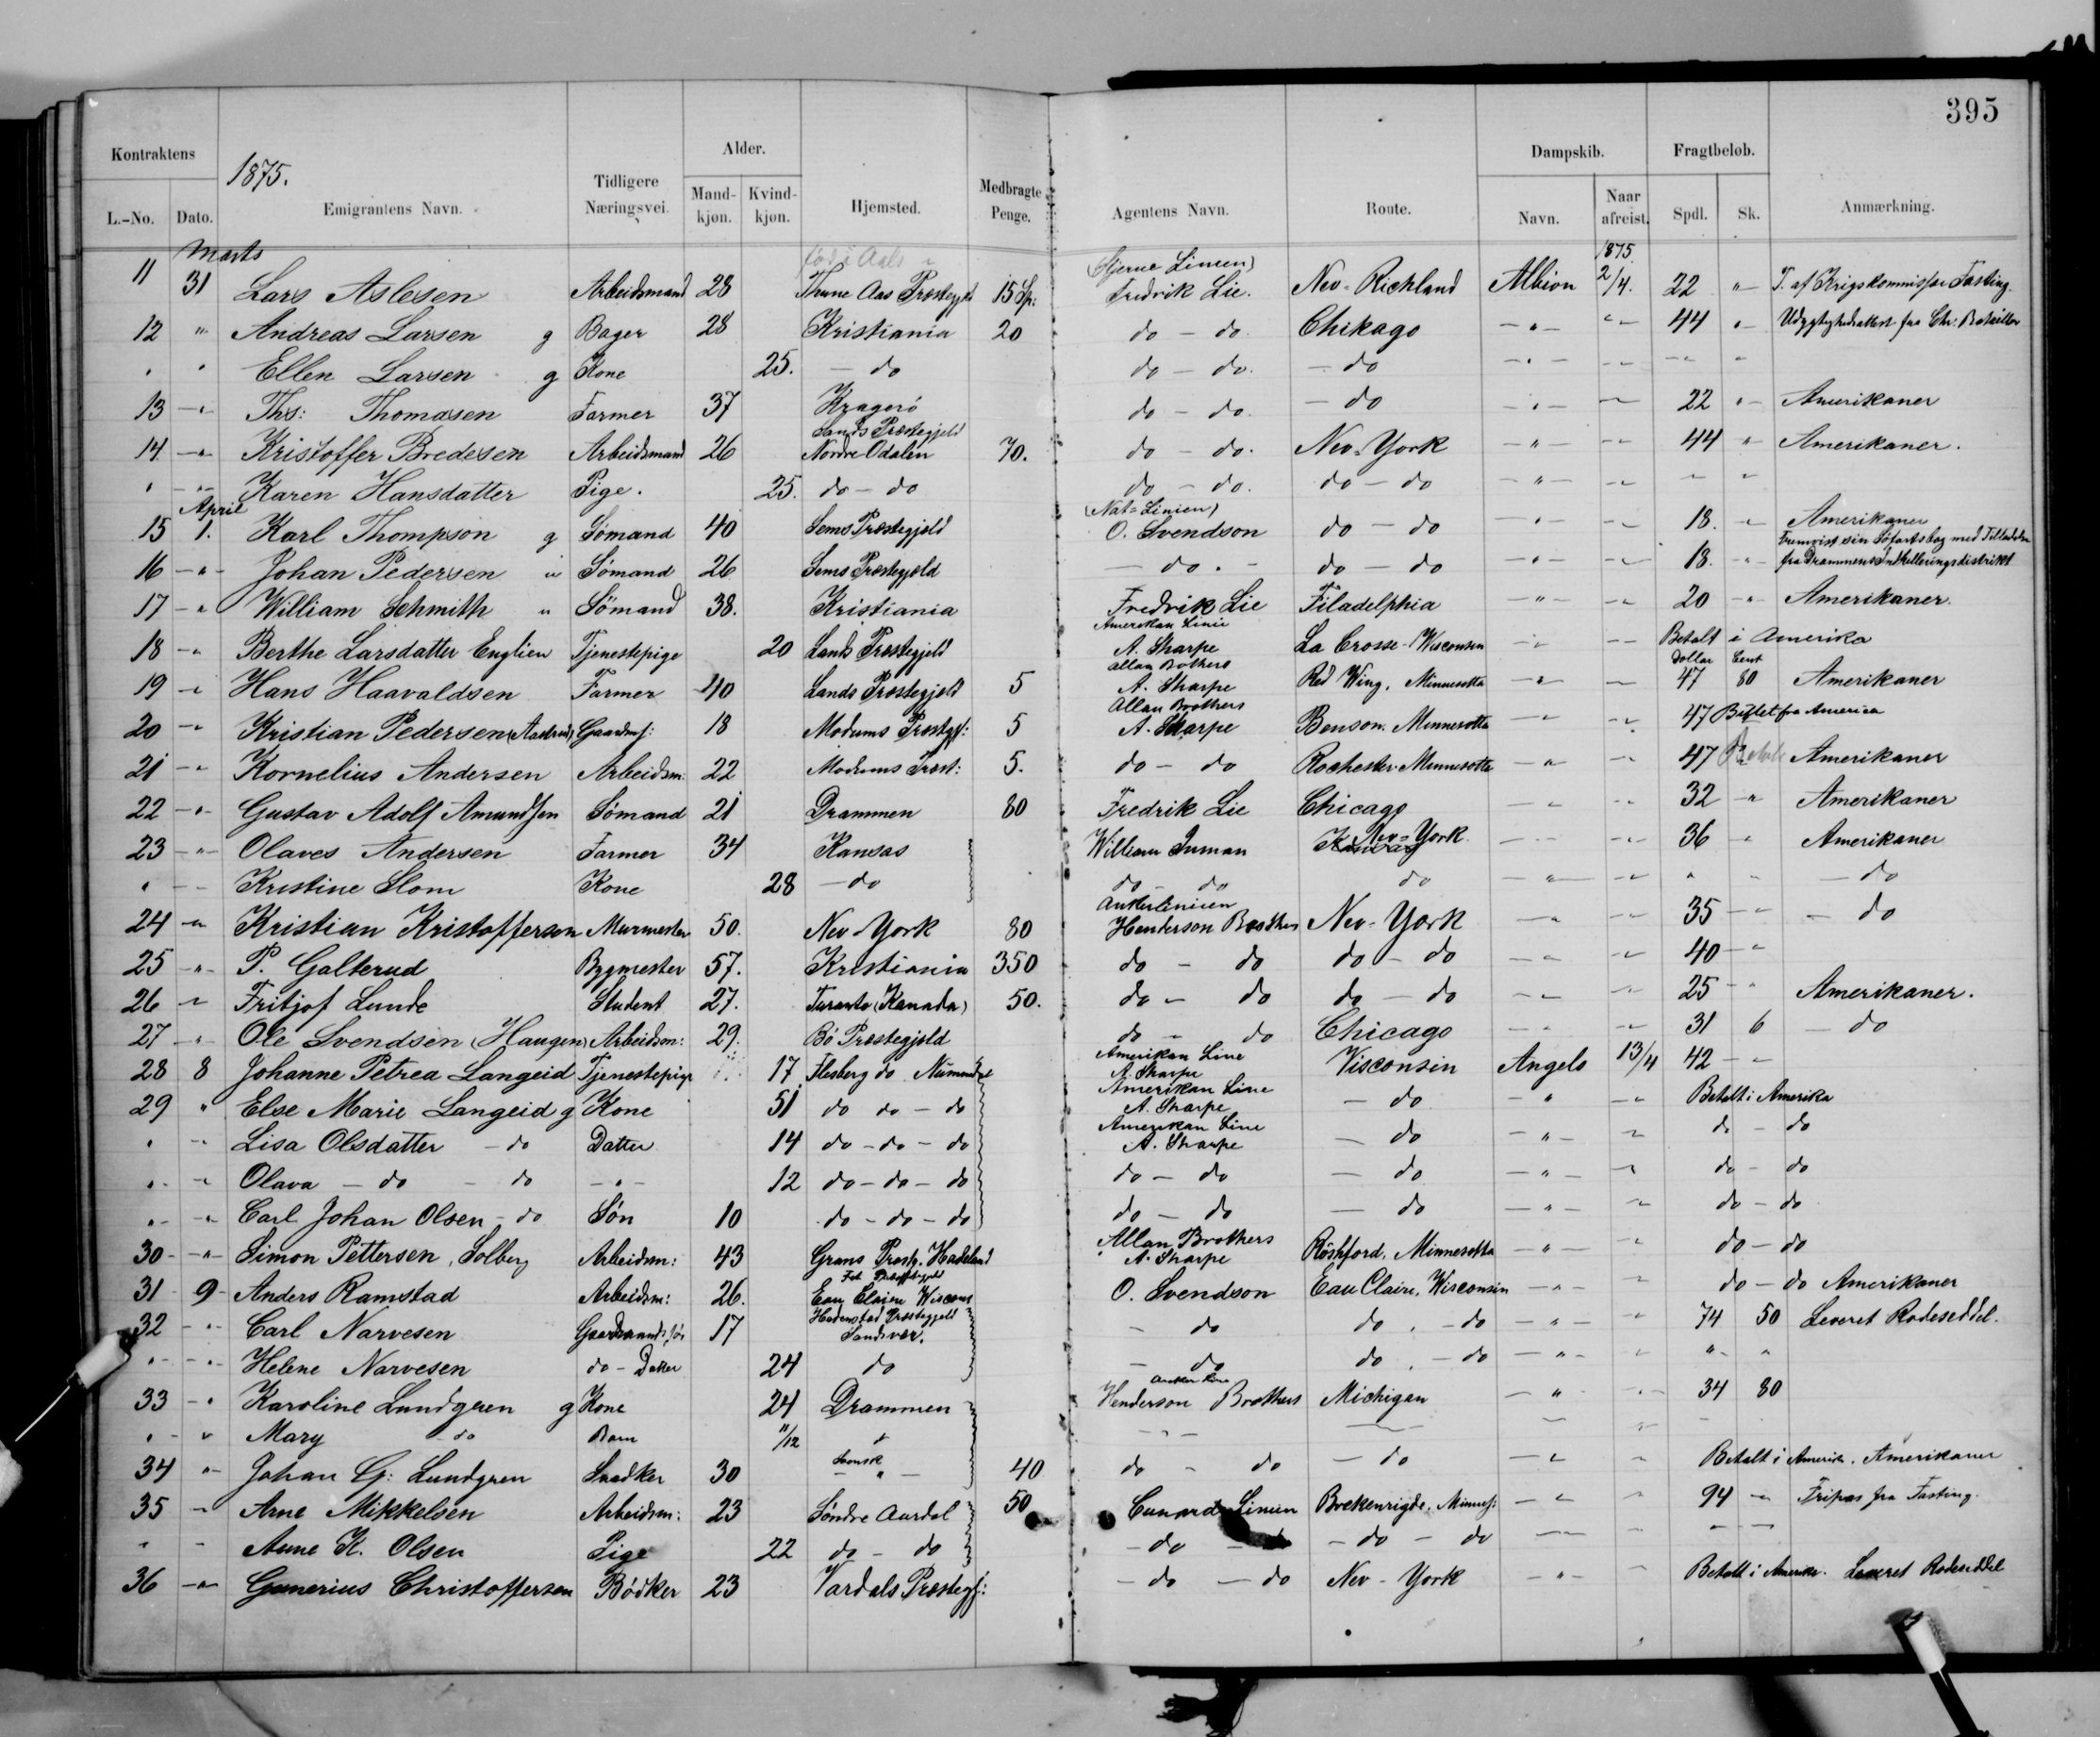 395
Kontraktens 1875. Alder. Dampskib. Fragtbeløb.
L.-No. Dato. Emigrantens Navn. Tidligere Næringsvei. Mandkjøn. Kvindkjøn. Hjemsted. Medbragte Penge. Agentens Navn. Route. Navn. Naar afreist. Spdl. Sk. Anmærkning.
Marts (Stjerne Linien) 1875.
11 31 Lars Aslesen Arbeidsmand 28 Thune Aas Præstegjeld 15 Sp: Fredrik Lie. Nev-Richland Albion 2/4. 22 " T. af Krigskommissær Fasting.
12 " Andreas Larsen g Bager 28 Kristiania 20 do - do Chikago - " - " 44 "
" " Ellen Larsen g Kone 25. - do do - do. - do - " - " - " "
13 - " Ths: Thomasen Farmer 37 Kragerö do - do. - do - " - " 22 " Amerikaner
Sands Præstegjeld
14 - " Kristoffer Bredesen Arbeidsmand 26 Nordre Odalen 70. do - do. Nev-York - " - " 44 " Amerikaner.
" - " Karen Hansdatter Pige. 25. do - do do - do. do - do - " - " " "
April (Nat-Linien)
15 1. Karl Thompson g Sömand 40 Sems Præstegjeld O. Svendson do - do - " - " 18. " Amerikaner
Fremvist sin Söfartsbog med Tilladelse
16 - " - Johan Pedersen u Sömand 26 Sems Præstegjeld - do. - do - do - " - " 18. " fra Drammens Indrulleringsdistrikt
17 - " William Schmith u Sömand 38. Kristiania Fredrik Lie Filadelphia - " - " 20 " Amerikaner.
Amerikan Linie
18 - " Berthe Larsdatter Englien Tjenestepige 20 Lands Præstegjeld A. Sharpe La Crosse-Wisconsin - " - " Betalt i Amerika
Allan Bothers Dollar Cent
19 - " Hans Haavaldsen Farmer 40 Lands Præstegjeld 5 A. Sharpe Red Wing, Minnesotta - " - " 47 80 Amerikaner
Allan Brothers
20 - " Kristian Pedersen Gaardms: 18 Modums Præstegj: 5 A. Sharpe Benson. Minnesotta - " - " 47 Billet fra America
21 - " Kornelius Andersen Arbeidsm: 22 Modums Præst: 5. do - do Rochester-Minnesotta - " - " 47 Amerikaner
22 - " Gustav Adolf Amundsen Sömand 21 Drammen 80 Fredrik Lie Chicago - " - " 32 " Amerikaner
23 - " Olaves Andersen Farmer 34 Kansas William Inman Kansas Nev-York - " - " 36 " Amerikaner
" - " Kristine Slom Kone 28 - do do - do do - " - " " " - do
Ankerlinien
24 - " Kristian Kristofferson Murmester 50. Nev-York 80 Henderson Brothers Nev-York - " - " 35 - " - do
25 - " P. Galterud Bygmester 57. Kristiania 350 do - do do - do - " - " 40 - "
26 - " Fritjof Lunde Student 27. Turonto (Kanada) 50. do - do do - do - " - " 25 - " Amerikaner.
27 - " Ole Svendsen (Haugen) Arbeidsm: 29. Bö Præstegjeld do - do Chicago - " - " 31 6 - do
Amerikan Line
28 8 Johanne Petrea Langeid Tjenestepige 17 Flesberg do Nummedal A. Sharpe Visconsin Angelo 13/4 42 - "
Amerikan Line
29 " Else Marie Langeid g Kone 51 do do - do A. Sharpe - do - " - " Betalt i Amerika
Amerikan Line
" - " Lisa Olsdatter - do Datter 14 do - do - do A. Sharpe - do - " - " do - do
" - " Olava - do - do - " - 12 do - do - do do - do - do - " - " do - do
" - " Carl Johan Olsen - do Sön 10 do - do - do do - do - do - " - " do - do
Allan Brothers
30 - " Simon Pettersen, Solberg Arbeidsm: 43 Grans Præstg. Hadeland A. Sharpe Röshford, Minnesotta - " - " do - do
31 9 - Anders Ramstad Arbeidsm: 26. Eau Claire Wiscons O. Svendson Eau Claire, Wisconsin - " - " do - do Amerikaner
Hedenstad Præstegjeld
32 - " Carl Narvesen Gaardmands sön 17 Sandsvær. - do do. - do - " - " 74 50 Leveret Rodeseddel.
" - " Helene Narvesen do - Datter 24 do - do do. - do - " - " " "
Anker Line
33 - " Karoline Lundgren g Kone 24 Drammen Henderson Brothers Michigan - " - " 34 80
" - " Mary do Barn 11/12 " - " - - " - " - "
Svensk
34 " Johan G: Lundgren Snedker 30 - " - 40 do - do - do - " - " Betalt i Amerik. Amerikaner
35 - " Arne Mikkelsen Arbeidsm: 23 Söndre Aurdal 50 Cunard Linien Brekenrigde, Minnes: - " - " 94 - " Fripas fra Fasting.
" - " Anne K. Olsen Pige 22 do - do - do - do - do - do - " - " - "
36 - " Gunerius Christofferson Bödker 23 Vardals Præstegj: - do - do Nev-York - " - " Betalt i Amerika. Leveret Rodeseddel